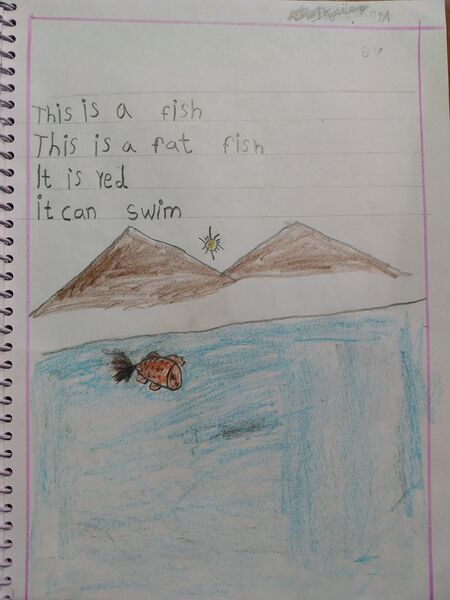 This is a fish
This is a fat fish
It is red
it can swim